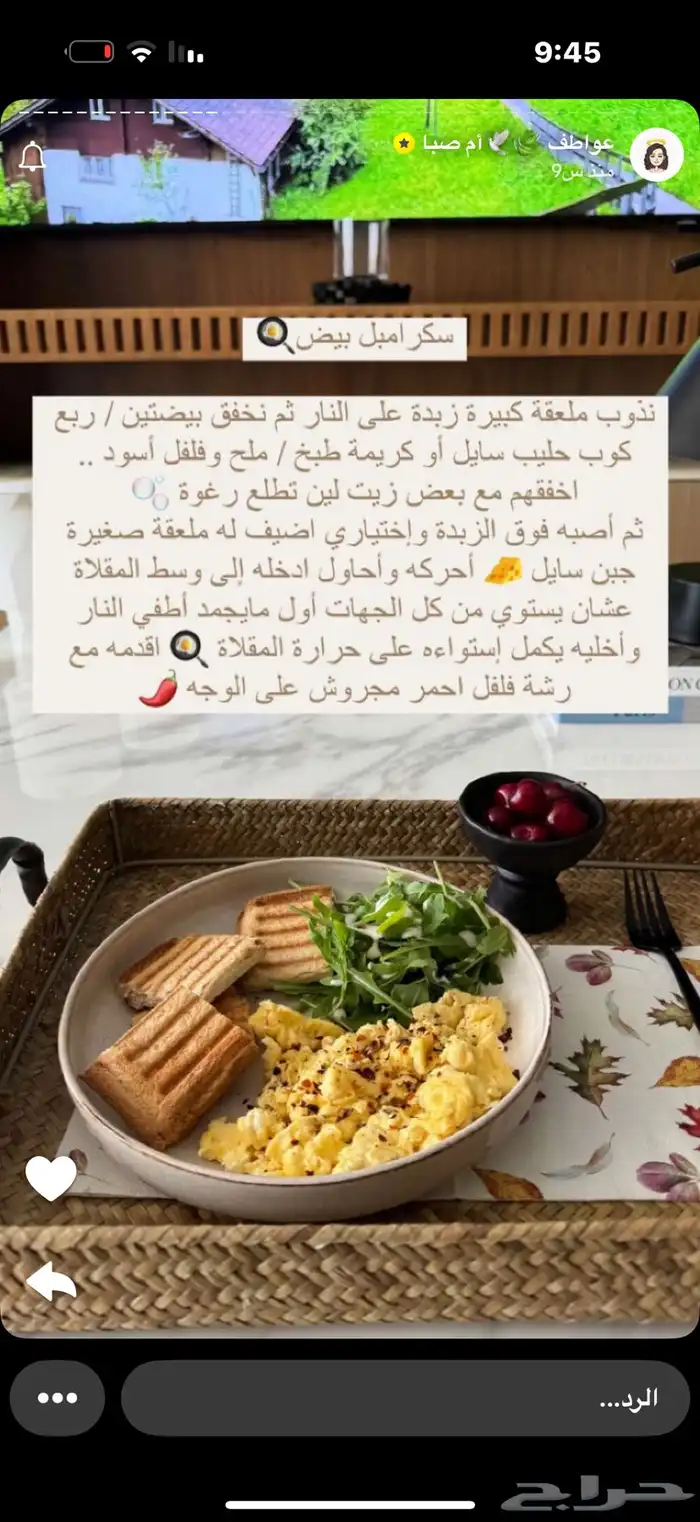 9:45
عواطف 🌿🕊️ أم صبا ⭐
منذ س9
سكرامبل بيض🍳
نذوب ملعقة كبيرة زبدة على النار ثم نخفق بيضتين / ربع
كوب حليب سايل أو كريمة طبخ / ملح وفلفل أسود ..
اخفقهم مع بعض زيت لين تطلع رغوة 🫧
ثم أصبه فوق الزبدة وإختياري اضيف له ملعقة صغيرة
جبن سايل 🧀 أحركه وأحاول ادخله إلى وسط المقلاة
عشان يستوي من كل الجهات أول مايجمد أطفي النار
وأخليه يكمل إستواءه على حرارة المقلاة 🍳 اقدمه مع
رشة فلفل احمر مجروش على الوجه 🌶️
الرد...
حراج